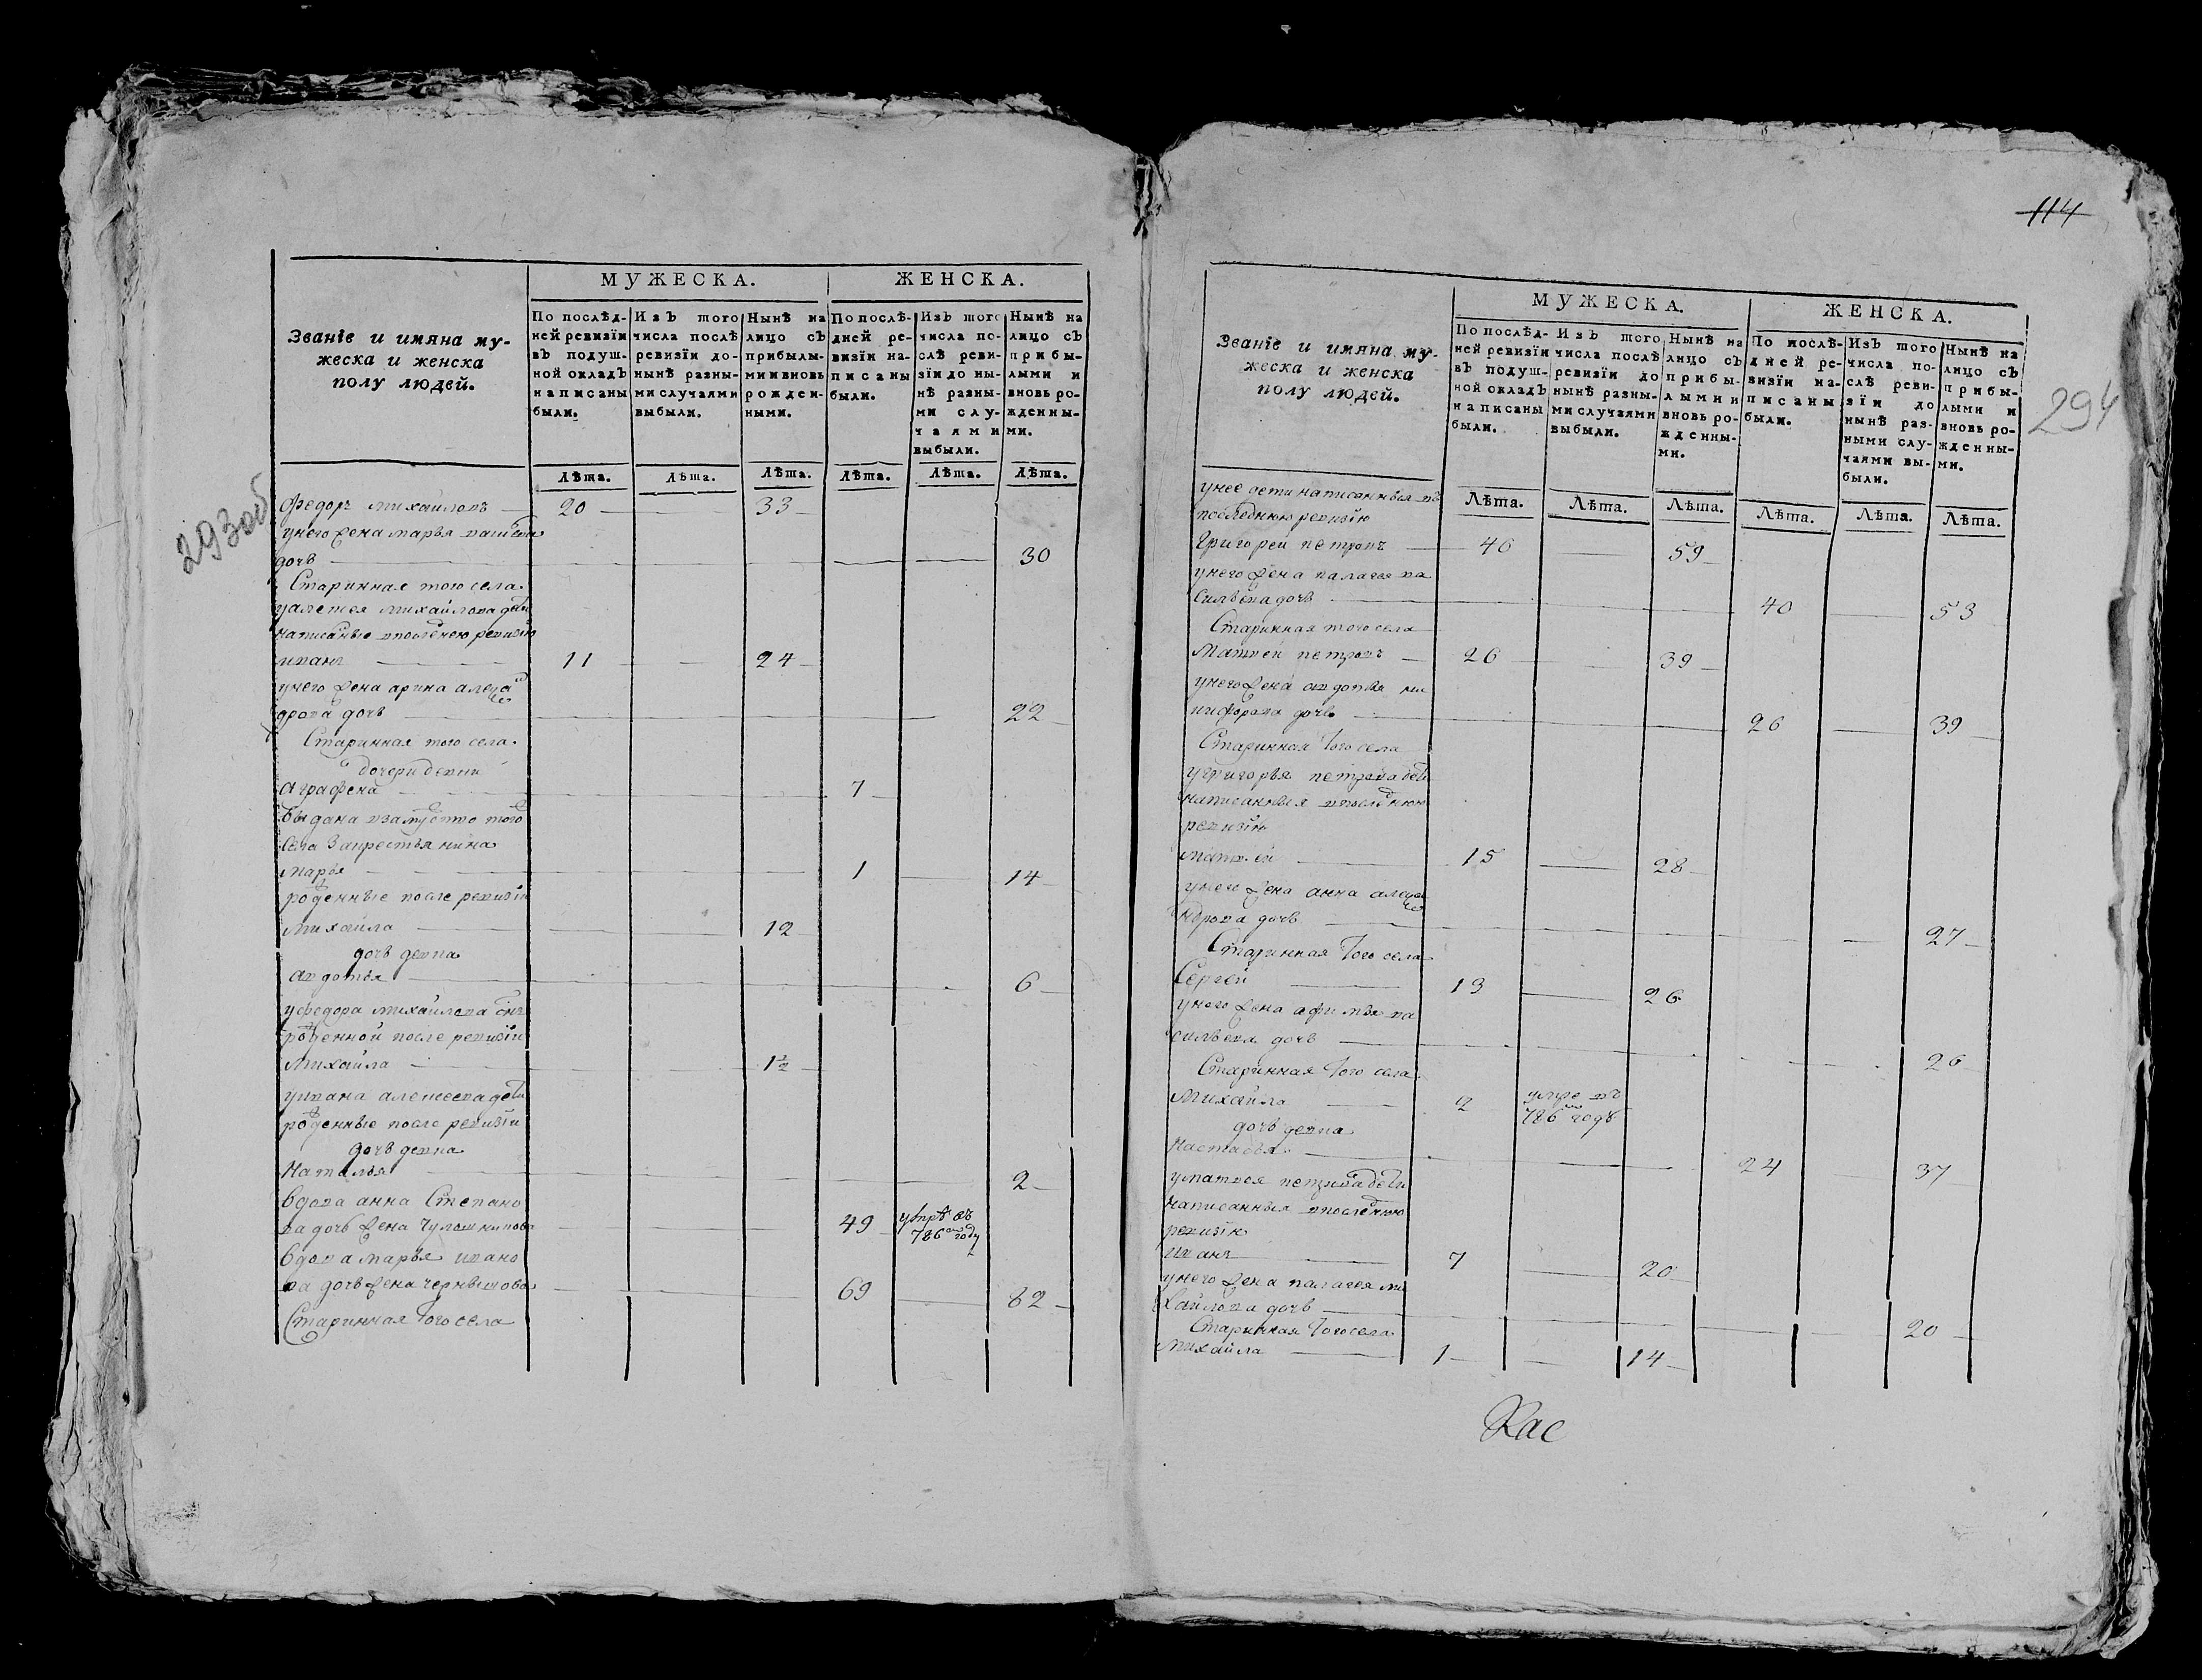 293об
МУЖЕСКА. ЖЕНСКА.
Званіе и имяна му-
жеска и женска
полу людей.
По послѣд-
ней ревизіи
въ подуш-
ной окладъ
написаны
были.
Изъ того
числа послѣ
ревизіи до-
нынѣ разны-
ми случаями
выбыли.
Нынѣ на
лицо съ
прибылы-
ми и вновь
рожден-
ными.
По послѣ-
дней ре-
визіи на-
писаны
были.
Изъ того
числа по-
слѣ реви-
зіи до ны-
нѣ разны-
ми слу-
чаями
выбыли.
Нынѣ на
лицо съ
прибы-
лыми и
вновь ро-
жденны-
ми.
Лѣта. Лѣта. Лѣта. Лѣта. Лѣта. Лѣта.
Федоръ михаиловъ 20 33
унего жена марья
дочь 30
Старинная того села
уалексея михайлова дети
написаные впоследнею ревизию
иванъ 11 24
унего жена арина алекса
дрова дочь 22
Старинная того села
дочери девки
Аграфена 7
выдана взамужство того
села за крестьянина
марья 1 14
рожденные после ревизiи
михайла 12
дочь девка
авдотья 6
уфедора михайлова сынъ
рожденной после ревизiи
михайла 1½
уивана алексеева дети
рожденные после ревизiи
дочь девка
Наталья 2
вдова анна Степано
ва дочь жена 49 умре въ
786 году
вдова марья ивано
ва дочь жена чернышова 69 82
Старинная того села
114
294
МУЖЕСКА. ЖЕНСКА.
Званіе и имяна му-
жеска и женска
полу людей.
По послѣд-
ней ревизіи
въ подуш-
ной окладъ
написаны
были.
Изъ того
числа послѣ
ревизіи до
нынѣ разны-
ми случаями
выбыли.
Нынѣ на
лицо съ
прибы-
лыми и
вновь ро-
жденны-
ми.
По послѣ-
дней ре-
визіи на-
писаны
были.
Изъ того
числа по-
слѣ реви-
зіи до
нынѣ раз-
ными слу-
чаями вы-
были.
Нынѣ на
лицо съ
прибы-
лыми и
вновь ро-
жденны-
ми.
Лѣта. Лѣта. Лѣта. Лѣта. Лѣта. Лѣта.
унее дети написанныя въ
последнюю ревизiю
Григорей петровъ 46 59
унего жена палагея ва
сильева дочь 40 53
Старинная того села
Матвей петровъ 26 39
унего жена авдотья ни
кифорова дочь 26 39
Старинная того села
угригорья петрова дети
написанныя впоследнюю
ревизiю
матвей 15 28
унего жена анна алекса
ндрова дочь 27
Старинная того села
Сергей 13 26
унего жена афимья ва
сильева дочь 26
Старинная того села
Михайла 2 умре въ
786 м годѣ
дочь девка
Настасья 24 37
уматвея петрова дети
написанныя впоследнюю
ревизiю
иванъ 7 20
унего жена палагея ми
хайлова дочь 20
Старинная того села
михайла 1 14
Кас